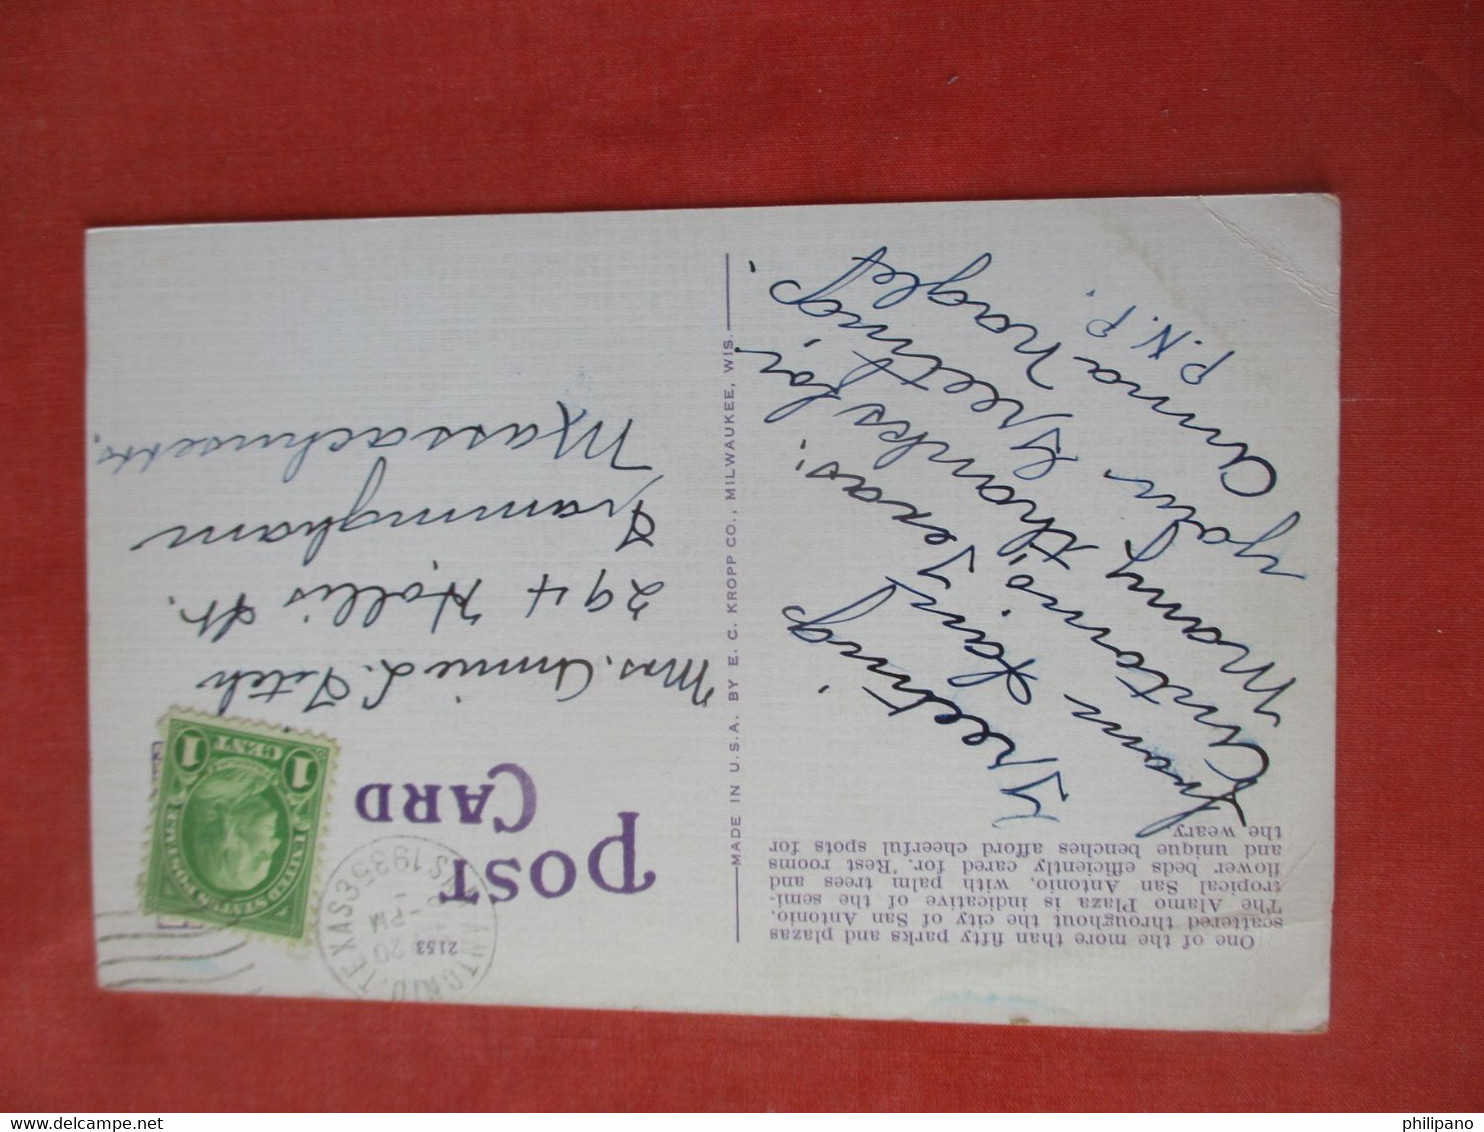 One of the more than fifty parks and plazas
scattered throughout the city of San Antonio.
The Alamo Plaza is indicative of the semi-
tropical San Antonio, with palm trees and
flower beds efficiently cared for. Rest rooms
and unique benches afford cheerful spots for
the weary.
Greeting
from San
Antonio, Texas.
Many thanks for
your Greeting
Anna
P.N.P.
MADE IN U.S.A. BY E. C. KROPP CO., MILWAUKEE, WIS.
2153
POST
CARD
SAN ANTONIO, TEXAS
20
PM
1935
UNITED STATES POSTAGE
1 CENT 1
Mrs. Annie L. Fitch
294 Hollis St.
Framingham
Massachusetts.
philipano
delcampe.com